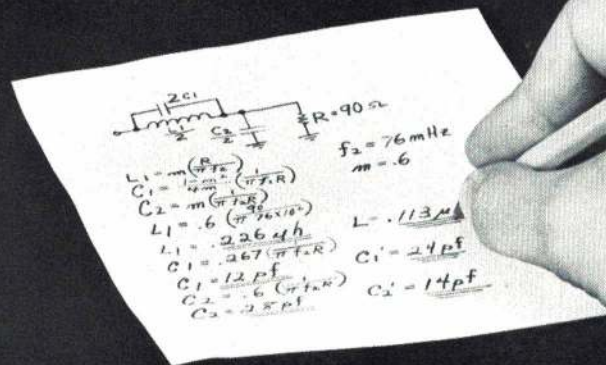 2C1
L1/2
C2/2
R=90 Ω
f2 = 76 mHz
m = .6
L1 = m(R/πf2)
C1 = 1-m²/4m (1/πf2R)
C2 = m(1/πf2R)
L1 = .6 (90/π 76×10⁶)
L1 = .226 μh
C1 = .267(1/πf2R)
C1 = 12 pf
C2 = .6 (1/πf2R)
C2 = 28 pf
L = .113 μ
C1' = 24 pf
C2' = 14 pf